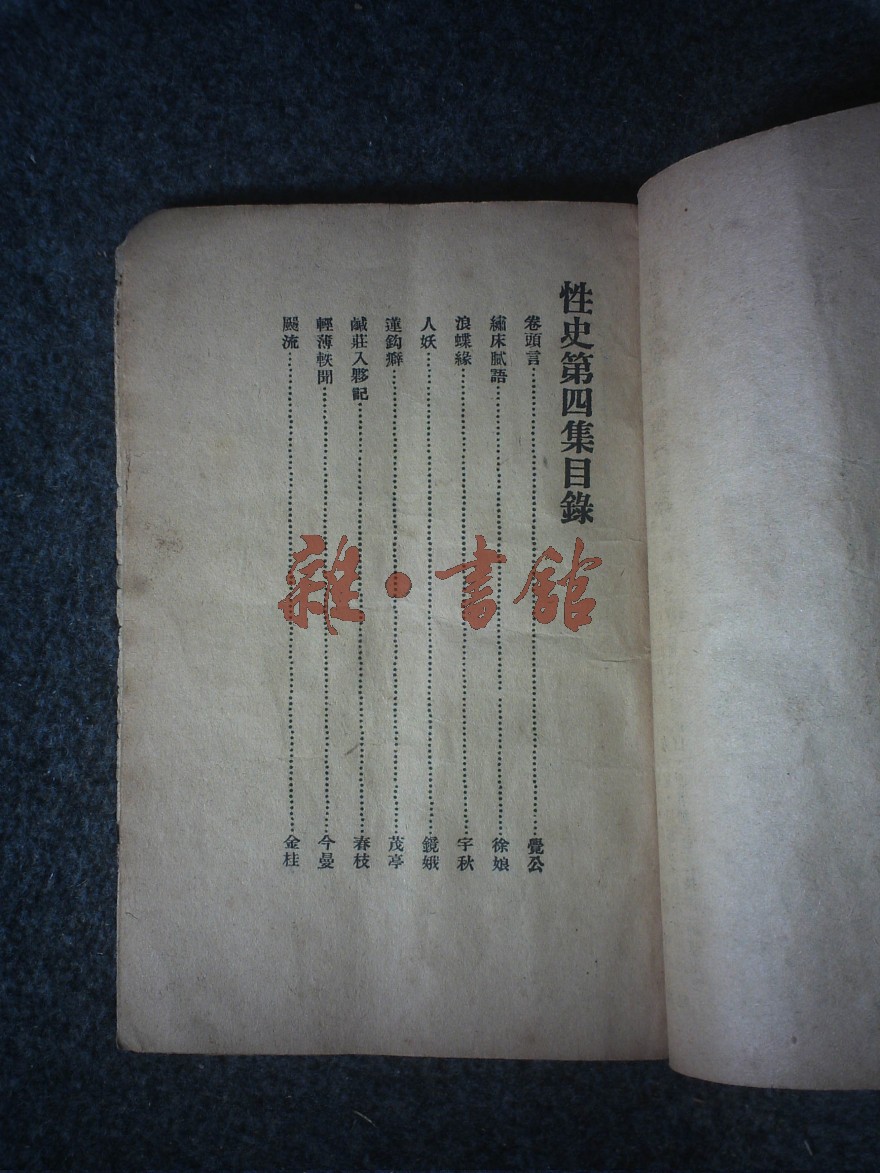 性史第四集目錄
卷頭言……覺公
繡床膩語……徐娘
浪蝶緣……宇秋
人妖……鏡娥
蓮鈎癖……茂亭
鹹莊入夥記……春枝
輕薄軼聞……今曼
流……金桂
雜·書館